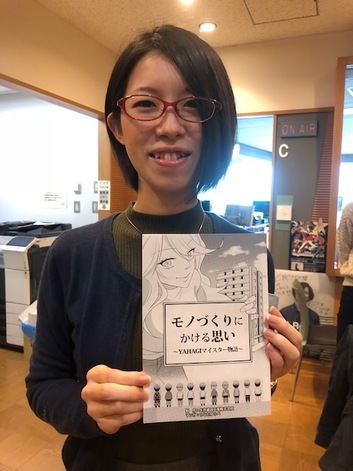 ON AIR
C
モノづくりに
かける思い
～YAHAGIマイスター物語～